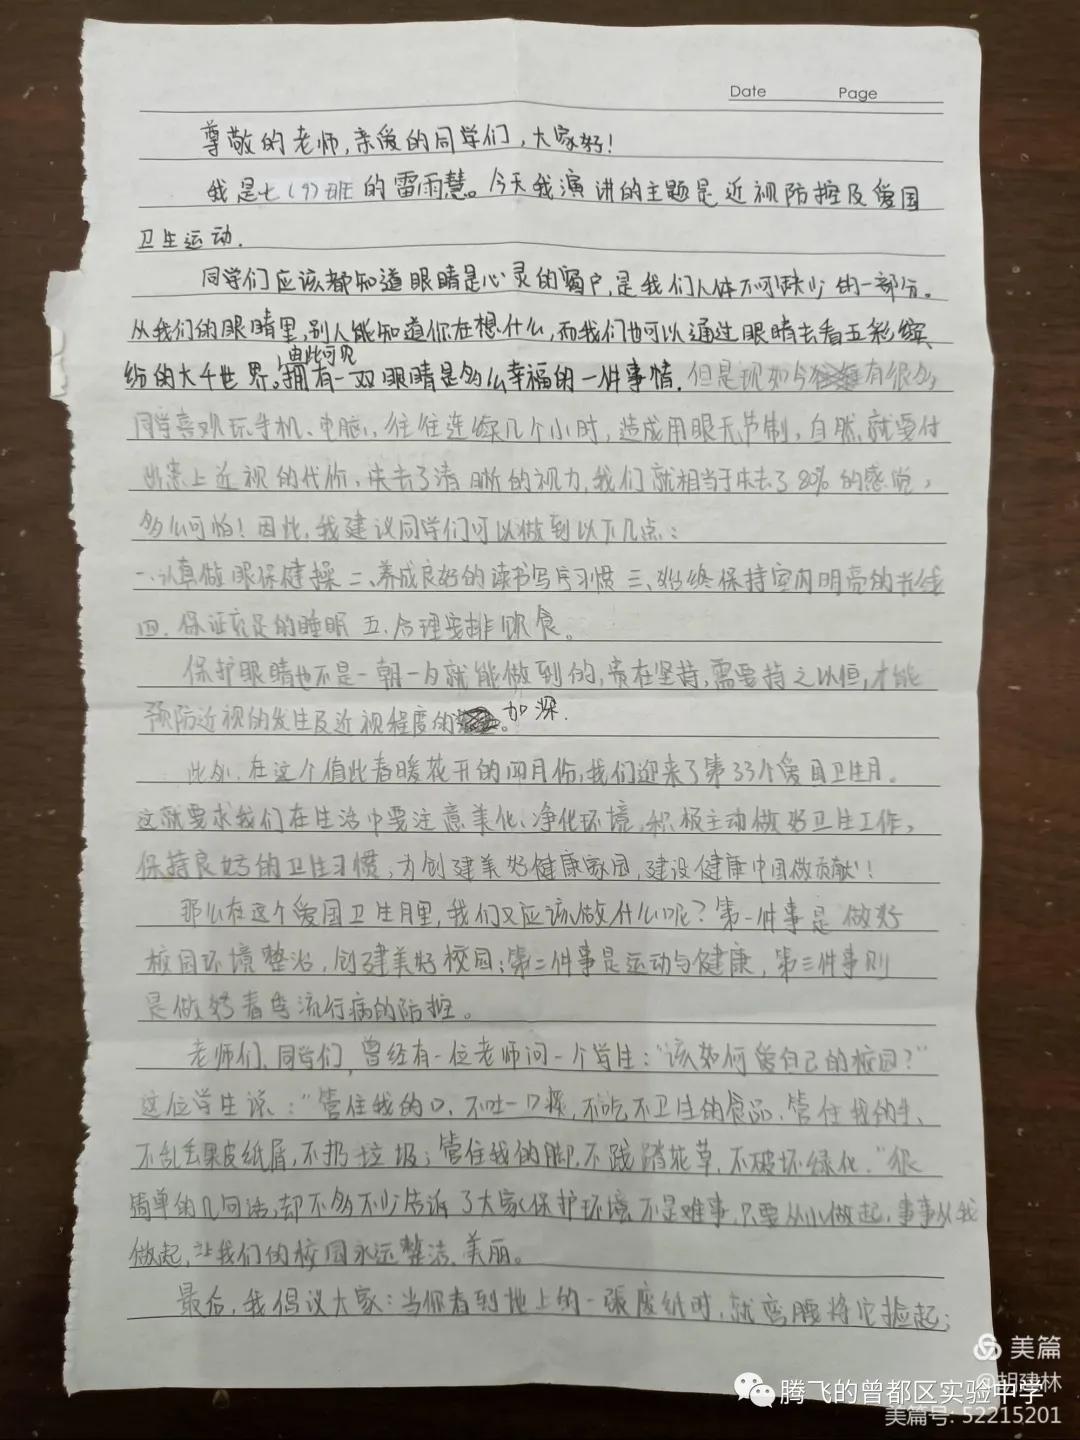 Date Page
尊敬的老师,亲爱的同学们,大家好!
我是七(9)班的雷雨慧。今天我演讲的主题是近视防控及爱国
卫生运动.
同学们应该都知道眼睛是心灵的窗户,是我们人体不可缺少的一部分。
从我们的眼睛里,别人能知道你在想什么,而我们也可以通过眼睛去看五彩缤
由此可见
纷的大千世界。拥有一双眼睛是多么幸福的一件事情.但是现如今有很多
同学喜欢玩手机、电脑,往往连续几个小时,造成用眼无节制,自然就要付
出患上近视的代价,失去了清晰的视力,我们就相当于失去了80%的感觉,
多么可怕!因此,我建议同学们可以做到以下几点:
一、认真做眼保健操 二、养成良好的读书写字习惯 三、始终保持室内明亮的光线
四、保证充足的睡眠 五、合理安排饮食。
保护眼睛也不是一朝一夕就能做到的,贵在坚持,需要持之以恒,才能
预防近视的发生及近视程度的加深.
此外,在这个值此春暖花开的四月份,我们迎来了第33个爱国卫生月。
这就要求我们在生活中要注意美化、净化环境,积极主动做好卫生工作,
保持良好的卫生习惯,为创建美好健康家园,建设健康中国做贡献!
那么在这个爱国卫生月里,我们又应该做什么呢?第一件事是做好
校园环境整治,创建美好校园;第二件事是运动与健康,第三件事则
是做好春季流行病的防控。
老师们、同学们,曾经有一位老师问一个学生:“该如何爱自己的校园?”
这位学生说:“管住我的口,不吐一口痰,不吃不卫生的食品,管住我的手、
不乱丢果皮纸屑,不扔垃圾;管住我的脚,不践踏花草,不破坏绿化.”很
简单的几句话,却不多不少告诉了大家保护环境不是难事,只要从小做起,事事从我
做起,让我们的校园永远整洁、美丽。
最后,我倡议大家:当你看到地上的一张废纸时,就弯腰将它捡起;
美篇
@胡建林
腾飞的曾都区实验中学
美篇号: 52215201